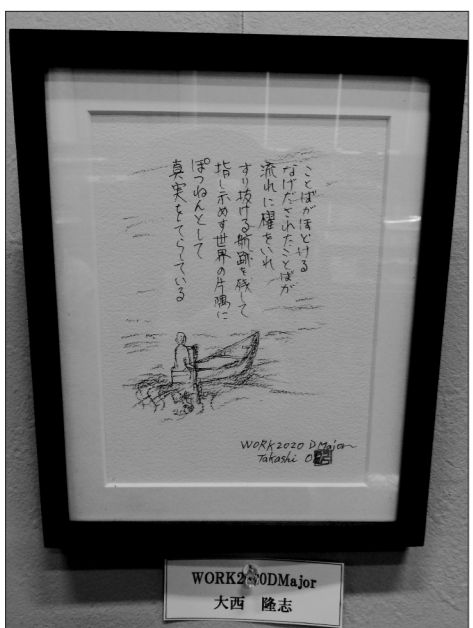 ことばがほどける
なげだされたことばが
流れに櫂をいれ
すり抜ける航跡を残して
指し示めす世界の片隅に
ぽつねんとして
真実をてらしている
WORK2020 DMajor
Takashi O
WORK2020DMajor
大西 隆志